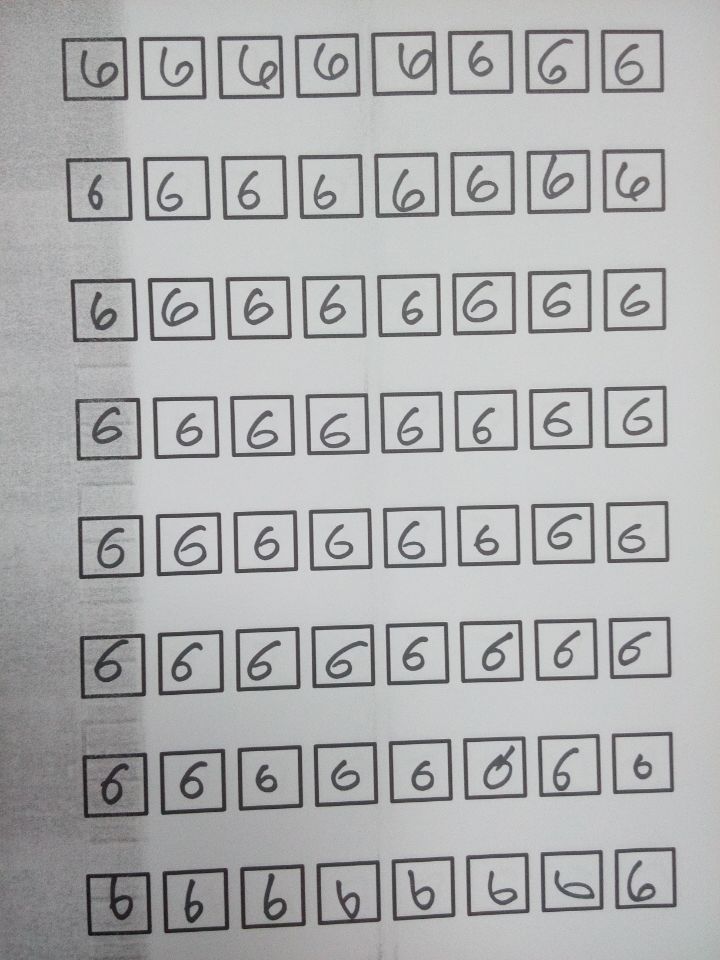 6 6 6 6 6 6 6 6
6 6 6 6 6 6 6 6
6 6 6 6 6 6 6 6
6 6 6 6 6 6 6 6
6 6 6 6 6 6 6 6
6 6 6 6 6 6 6 6
6 6 6 6 6 6 6 6
6 6 6 6 6 6 6 6